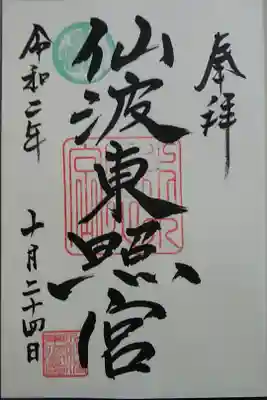 奉拝
仙波東照宮
令和二年
十月二十四日